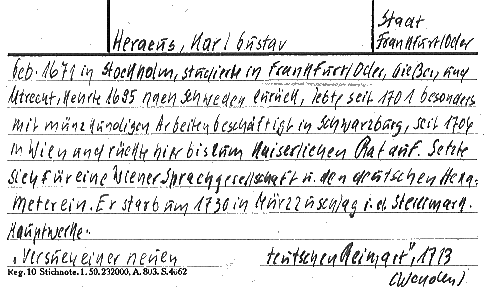 Heraeus, Karl Gustav
Stadt
Frankfurt/Oder
geb. 1671 in Stockholm, studierte in Frankfurt/Oder, Gießen, und
Utrecht, kehrte 1695 nach Schweden zurück, lebte seit 1701 besonders
mit münzkundigen Arbeiten beschäftigt in Schwarzburg, seit 1709
in Wien und rückte hier bis zum Kaiserlichen Rat auf. Setzte
sich für eine Wiener Sprachgesellschaft u. den deutschen Hexa-
meter ein. Er starb um 1730 in Mürzzuschlag i. d. Steiermark.
Hauptwerke.
"Versuch einer neuen teutschen Reimart", 1713
Reg. 10 Stichnote. 1. 50. 232000. A. 803. S. 4662
(Wenden)